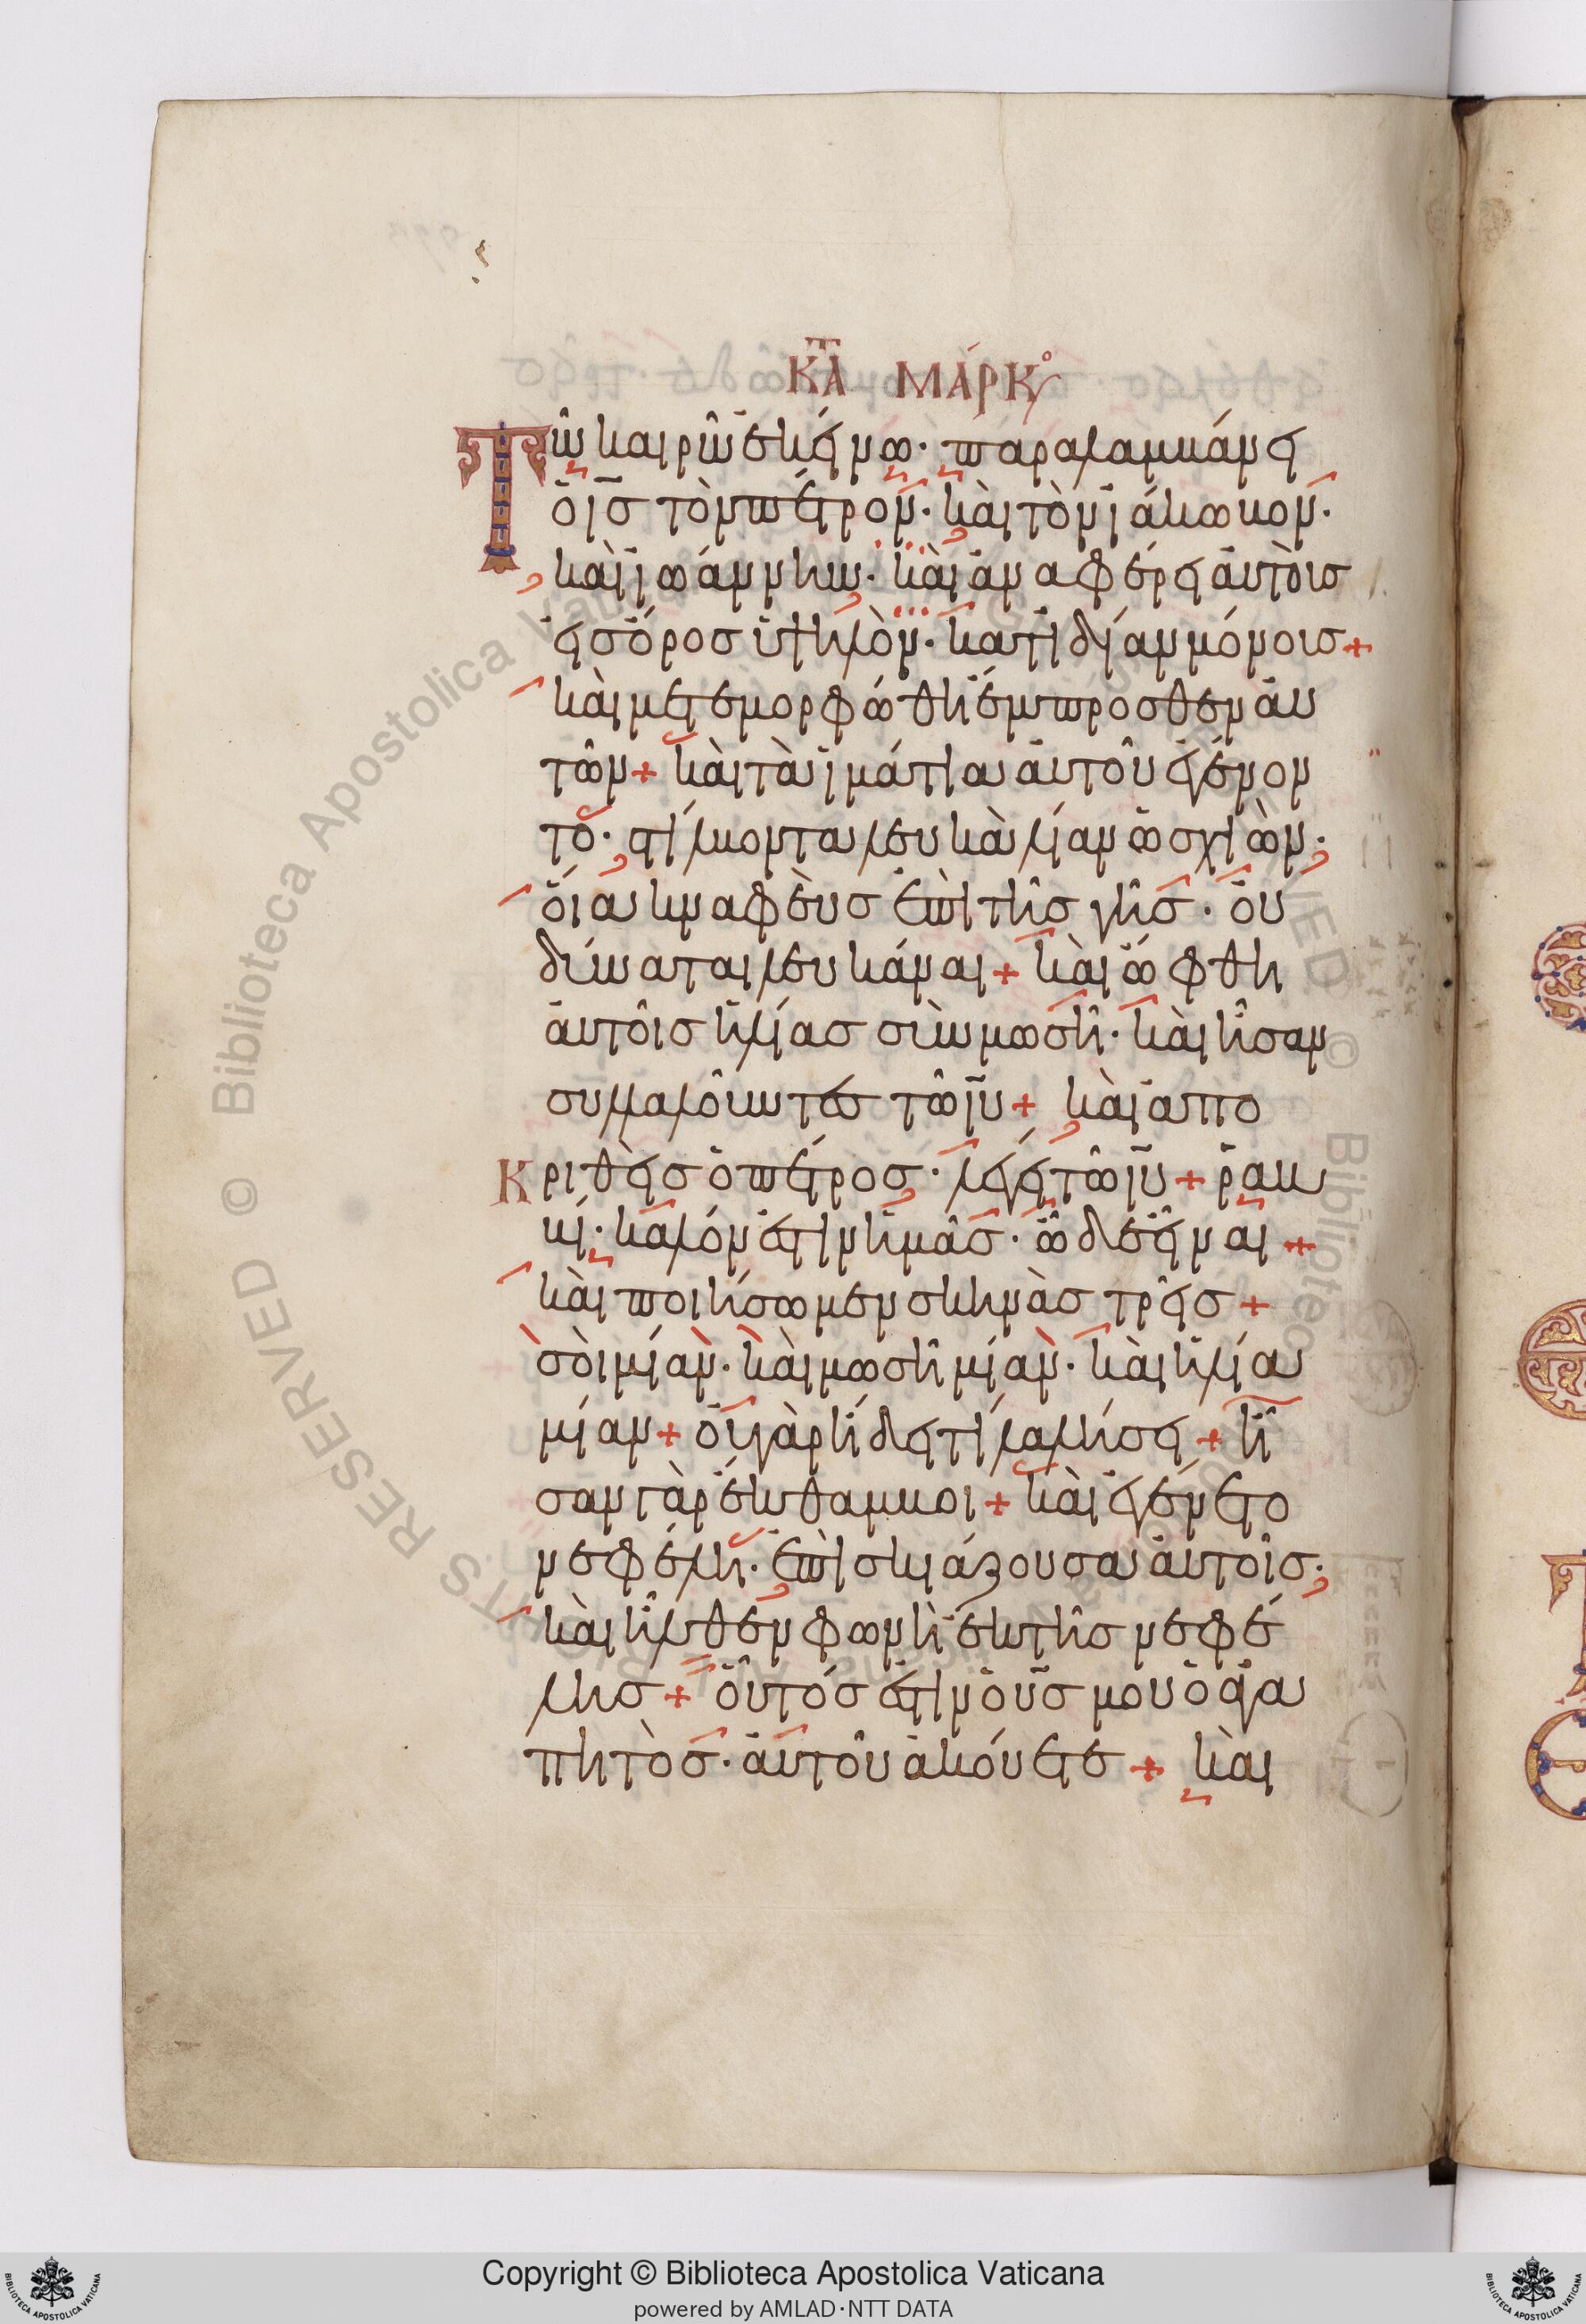 κτα μάρκου
Τῶ καιρῶ ἐκείνω· παραλαμβάνει
ὁ ις τὸν πέτρον· καὶ τὸν ϊάκωβον·
καὶ ϊωάννην· καὶ ἀναφέρει ἀυτὸυσ
εἰσ ὄροσ ὑψηλὸν· κατϊδίαν μόνουσ+
καὶ μετεμορφώθη ἔμπροσθεν ἀυ
τῶν+ καὶ τὰ ϊμάτια ἀυτοῦ ἐγένον
το· στίλβοντα λευκὰ λίαν ὡσ χιὼν·
ὅια κναφὲυσ ἐπὶ τῆσ γῆσ· ὀυ
δύναται λευκάναι+ καὶ ὤφθη
ἀυτοῖσ ἠλίασ σὺν μωσῆ· καὶ ἦσαν
συλλαλοῦντεσ τῶ ιυ+ καὶ ἀπο
Κριθεὶσ ὁ πέτροσ· λέγει τῶ ιυ+ ῥαβ
βί· καλόν ἐστιν ἡμᾶσ· ὧδε εἶναι+
καὶ ποιήσωμεν σκηνὰσ τρεῖσ+
σὸι μίαν· καὶ μωσῆ μίαν· καὶ ἠλία
μίαν+ ὀυ γὰρ ἤδει τί λαλήσει+ ἦ
σαν γὰρ ἔκθαμβοι+ καὶ ἐγένετο
νεφέλη· ἐπισκιάζουσα ἀυτοῖσ·
καὶ ἦλθεν φωνὴ ἐκ τῆσ νεφέ
λησ+ οὗτόσ ἐστιν ὁ υσ μου ὁ ἀγα
πητὸσ· ἀυτοῦ ἀκούετε+ καὶ
Copyright © Biblioteca Apostolica Vaticana
powered by AMLAD·NTT DATA